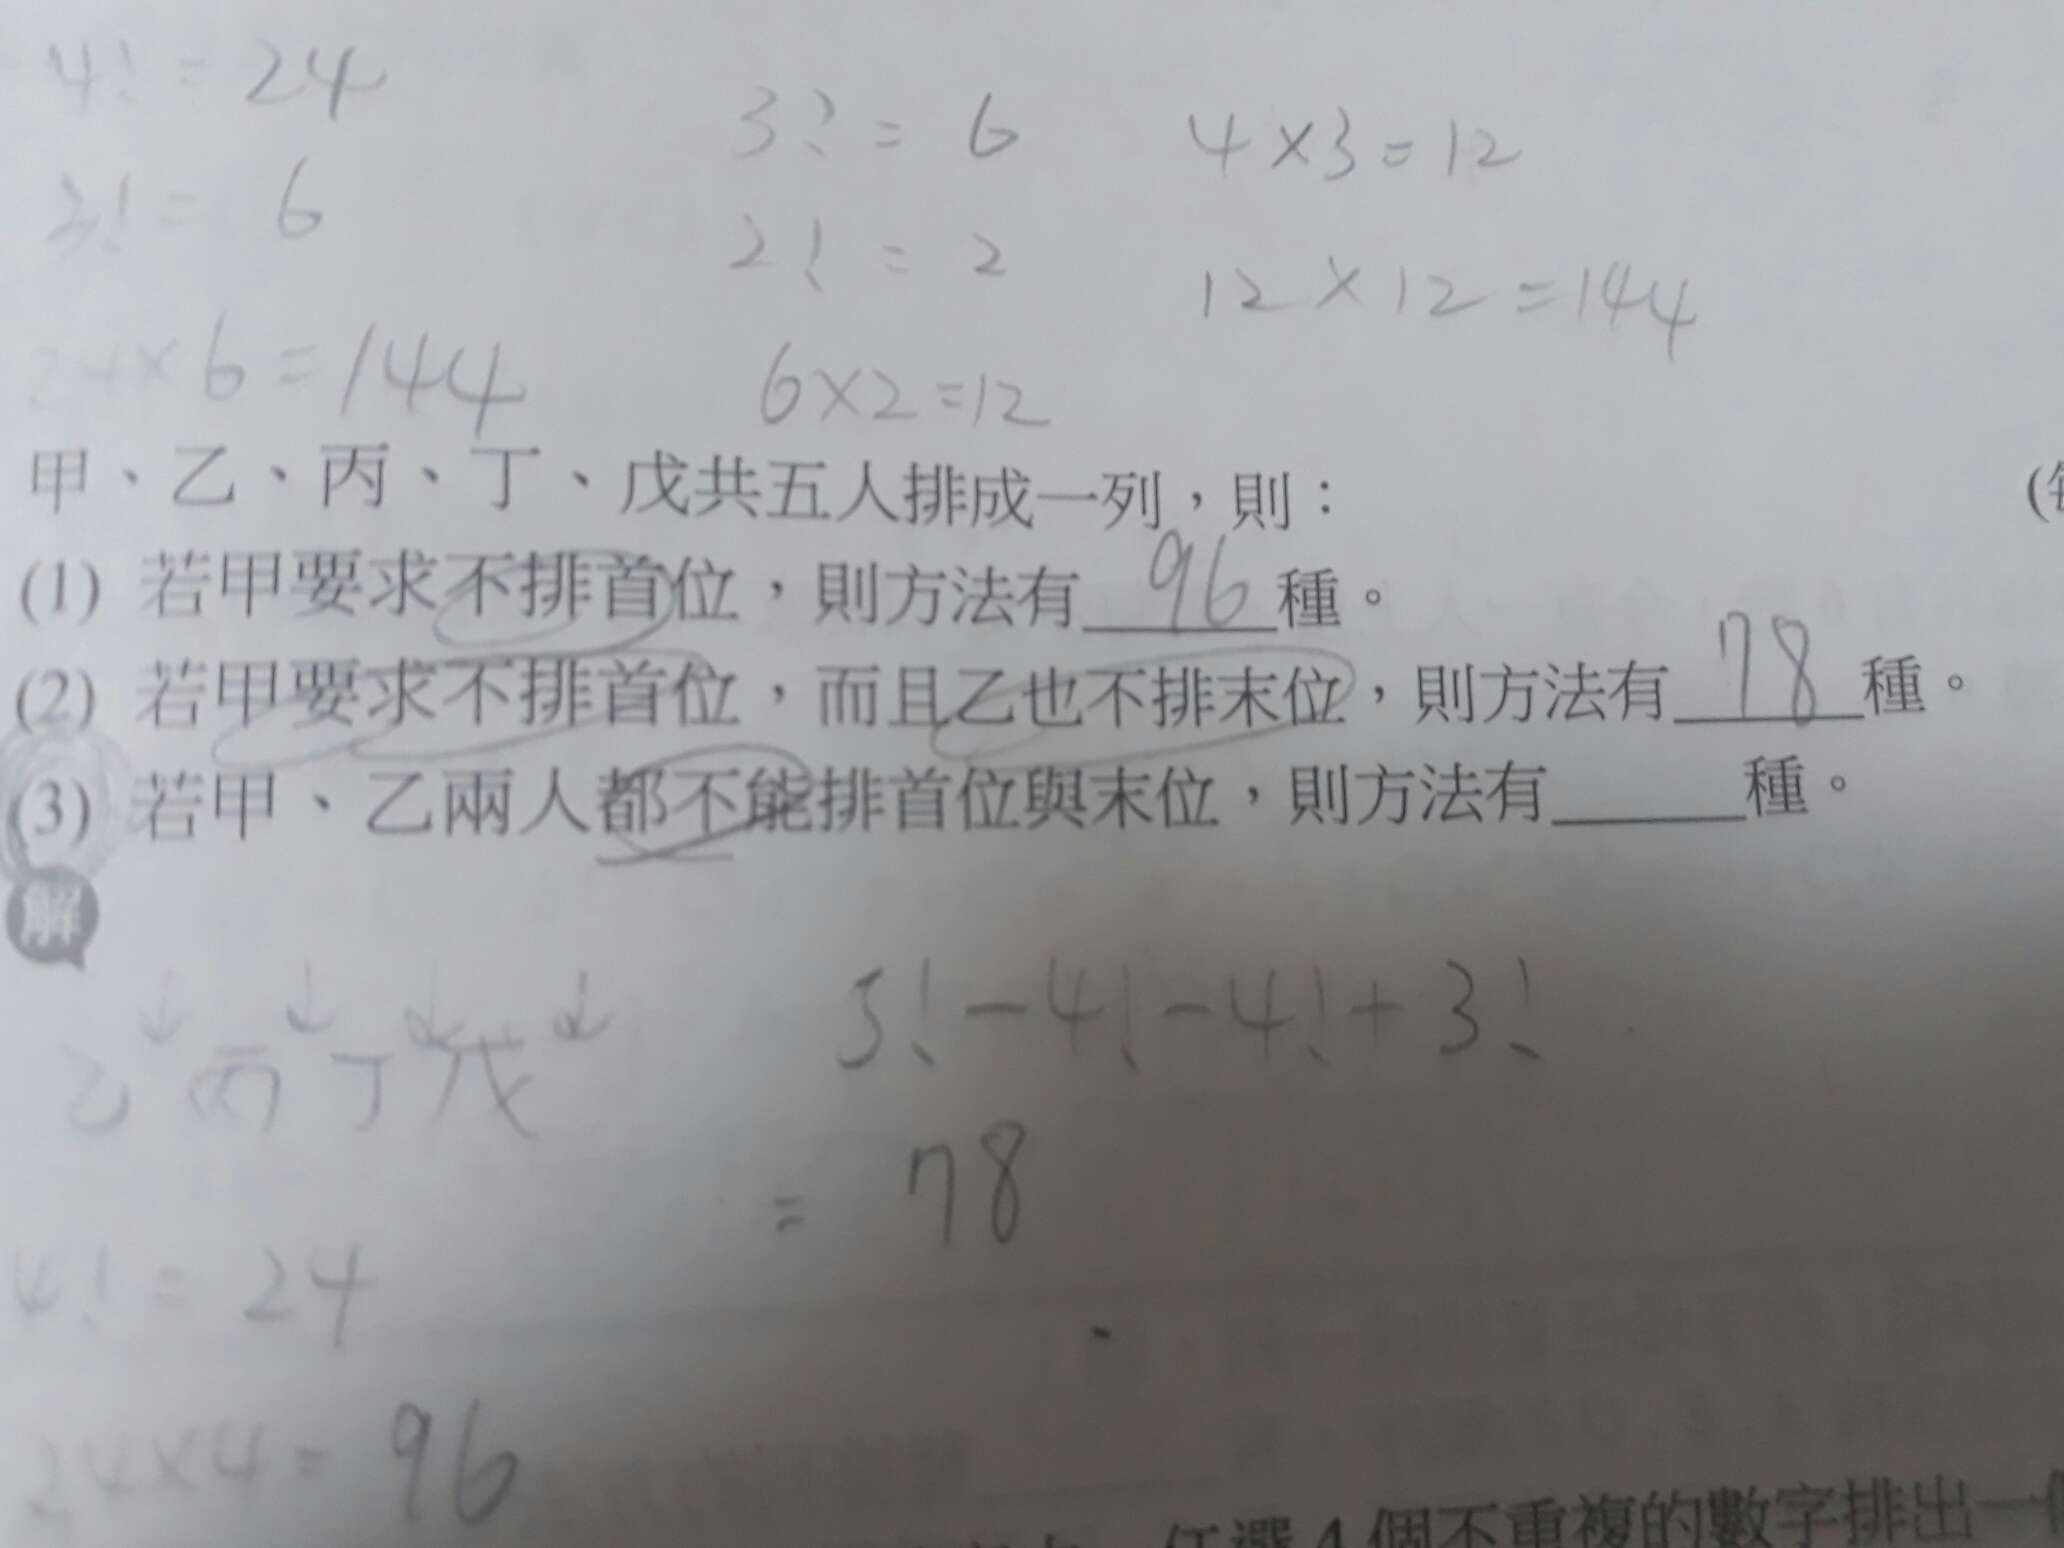 4! = 24
3! = 6
24 × 6 = 144
3! = 6
2! = 2
6×2=12
4×3=12
12×12=144
甲、乙、丙、丁、戊共五人排成一列，則：
(1) 若甲要求不排首位，則方法有 96 種。
(2) 若甲要求不排首位，而且乙也不排末位，則方法有 78 種。
(3) 若甲、乙兩人都不能排首位與末位，則方法有______種。
解
↓ ↓ ↓ ↓
乙 丙 丁 戊
4! = 24
24×4= 96
5!-4!-4!+3!
= 78
任選 4 個不重複的數字排出一